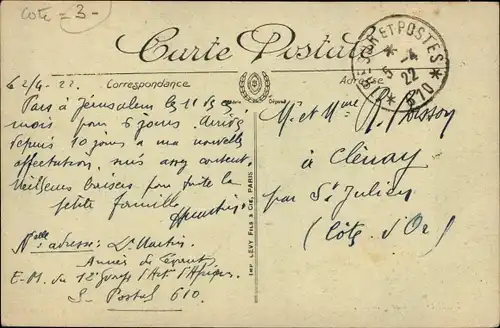 Cote = 3 -
Carte Postale
TRESOR ET POSTES
* 610 *
5 - 4
22
Correspondance
Adresse
le 2/4 - 22.
Pars à Jérusalem le 11 de ce
mois pour 6 jours. Arrivé
depuis 10 jours à ma nouvelle
affectation, suis assez content
Meilleurs baisers pour toute la
petite famille
Martin
Nelle adresse: Lt Martin
Armée du Levant
E.-M. du 12e d'Art d'Afrique
S. Postal 610
M. et Mme
à Clénay
par St Julien
(Côte d'Or)
IMP. LÉVY FILS & Cie, PARIS